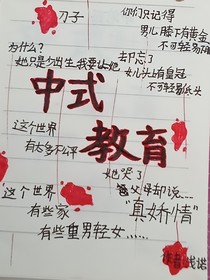 刀子
你们只记得
男儿膝下有黄金
不可轻易
为什么？
却忘了
女儿头上有皇冠
不可轻易低头
中式
教育
这个世界
有太多不公平
她哭了
父母却说……
“真娇情”
这个世界
有些家
有些重男轻女……